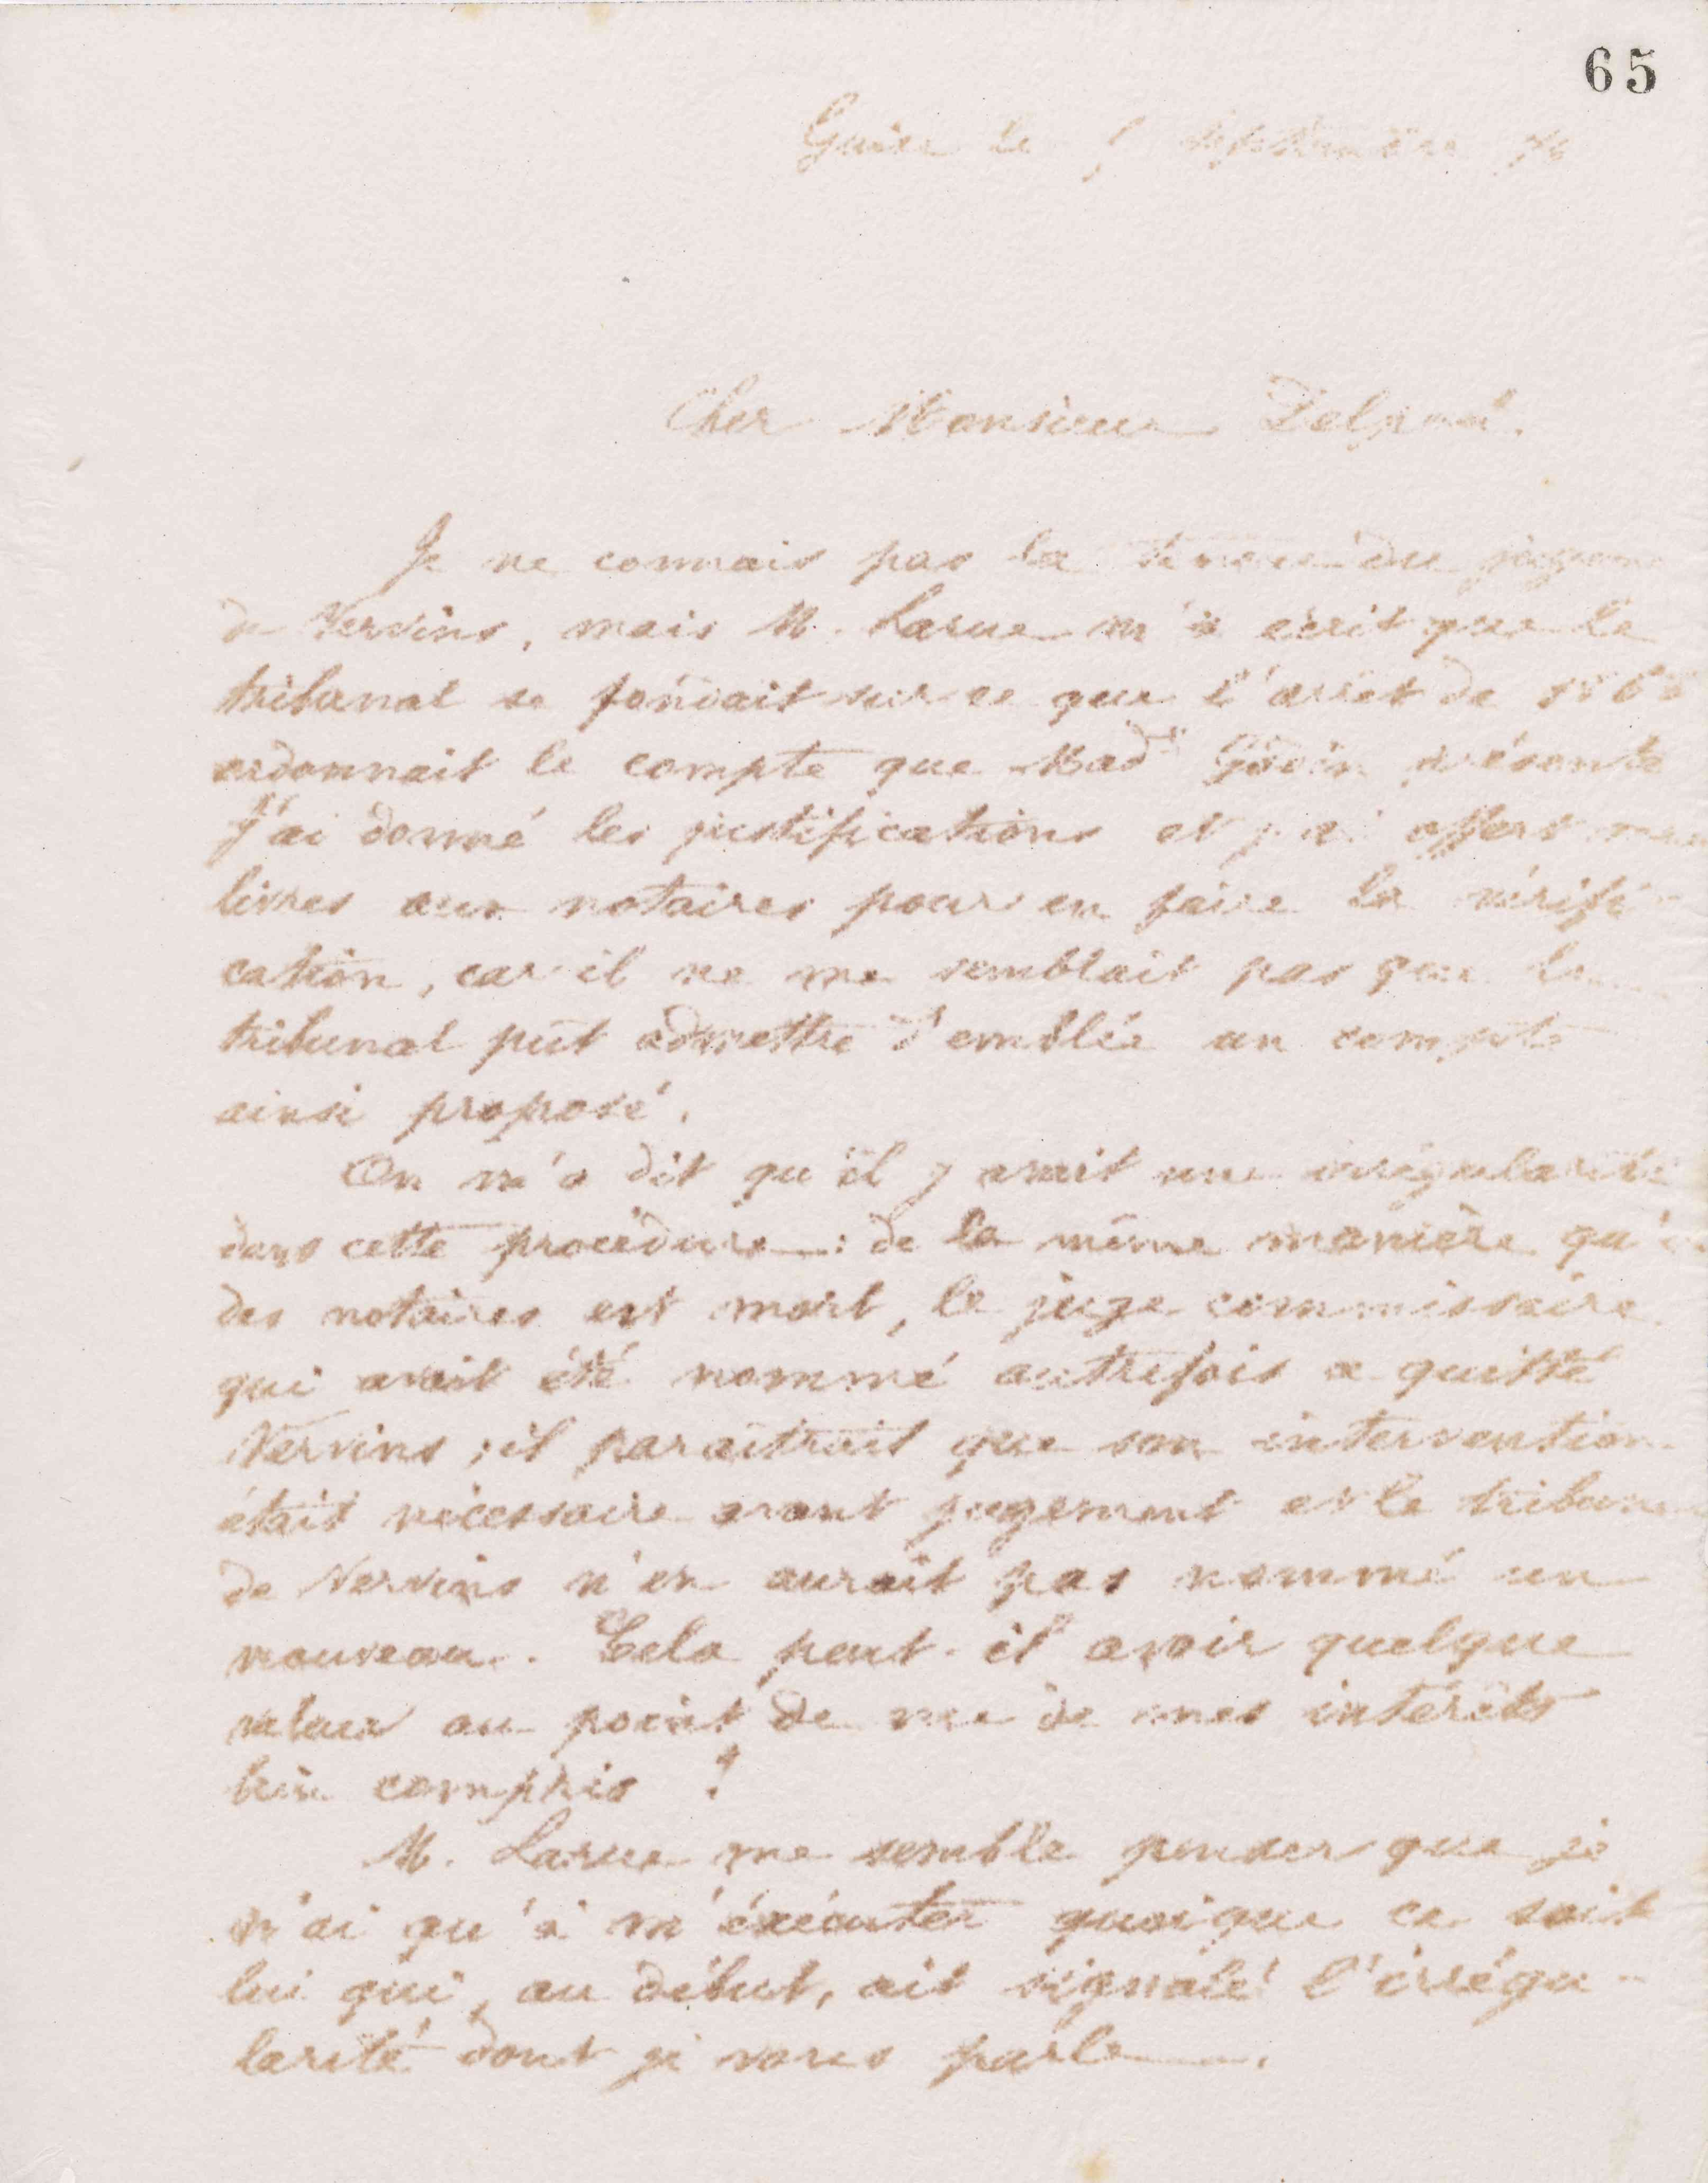 65
Guise le septembre 76
Cher Monsieur Delpech.
Je ne connais pas la teneur du jugem
de Vervins, mais M. Larue m'a écrit que le
tribunal se fondait sur ce que l'arrêt de 186
ordonnait le compte que Made Godin présente
J'ai donné les justifications et j'ai offert mes
livres aux notaires pour en faire la vérifi
cation, car il ne me semblait pas que le
tribunal pût admettre d'emblée un compte
ainsi proposé.
On m'a dit qu'il y avait une irrégularité
dans cette procédure : de la même manière qu'
des notaires est mort, le juge commissaire
qui avait été nommé autrefois a quitté
Vervins ; il paraîtrait que son intervention
était nécessaire avant jugement et le tribuna
de Vervins n'en aurait pas nommé un
nouveau. Cela peut-il avoir quelque
valeur au point de vue de mes intérêts
bien compris ?
M. Larue me semble penser que je
n'ai qu'à m'éxécuter quoique ce soit
lui qui, au début, ait signalé l'irrégu-
larité dont je vous parle.